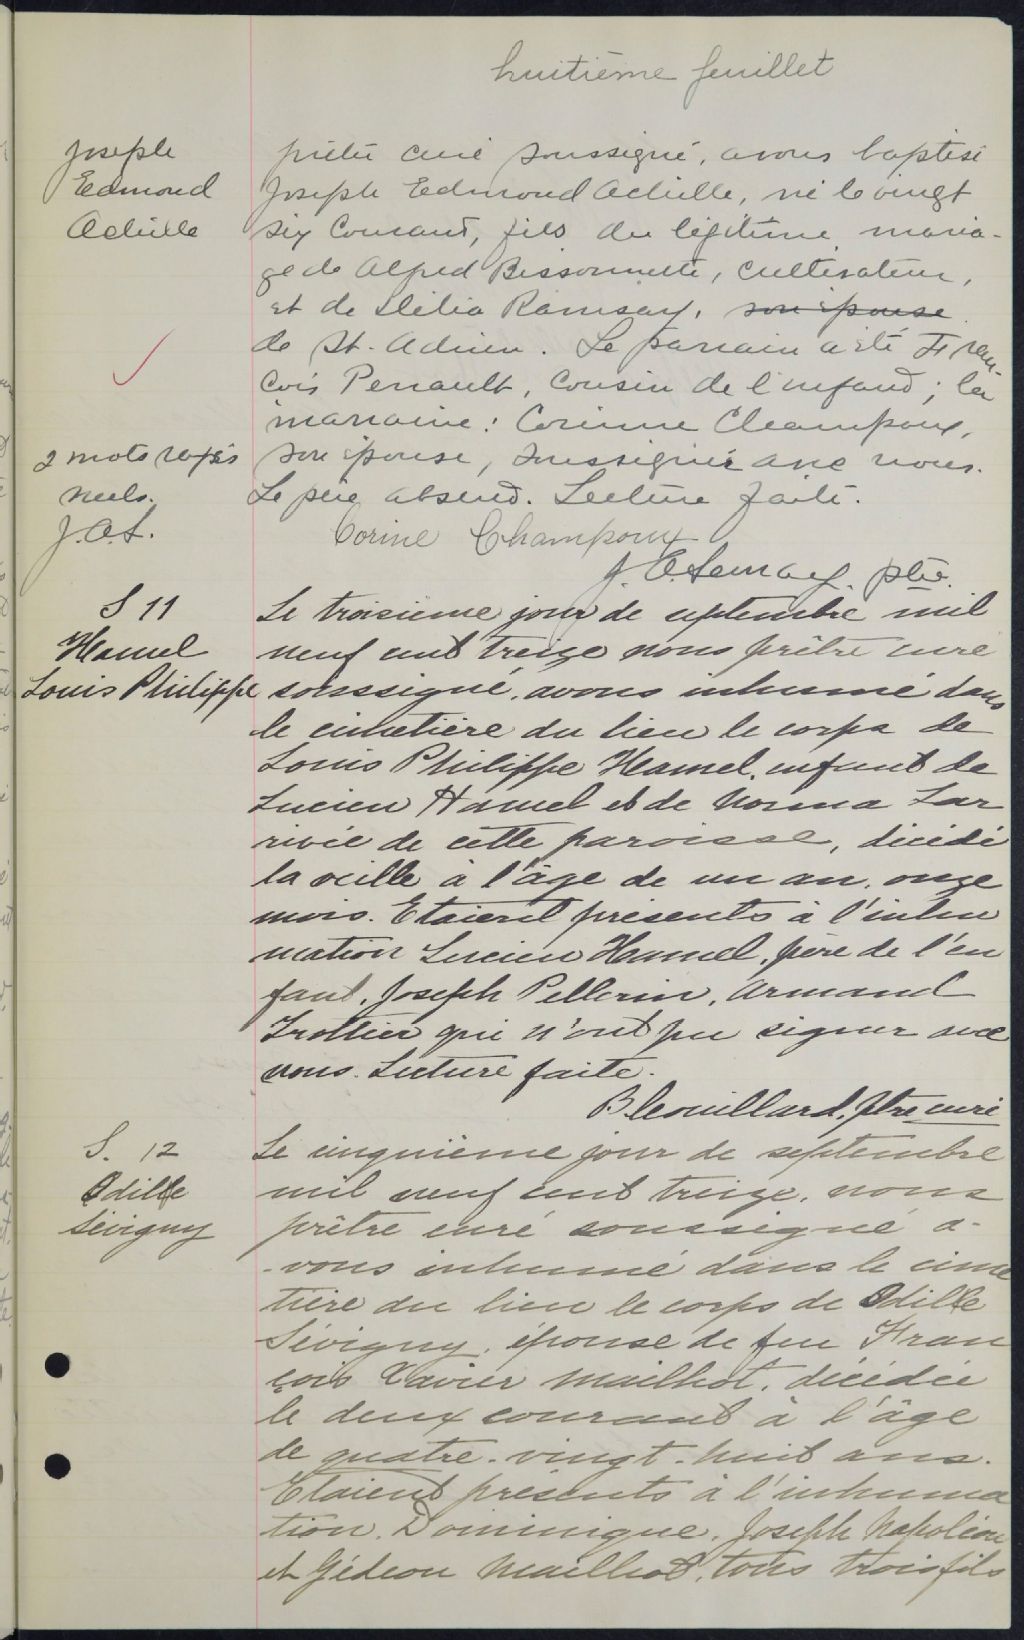 huitième feuillet
Joseph
Edmond
Achille
prêtre curé soussigné, avons baptisé
Joseph Edmond Achille, né le vingt
six courant, fils du légitime maria-
ge de Alfred Bissonnette, cultivateur,
et de Délia Ramsay, son épouse
de St. Adrien. Le parrain a été Fran-
çois Perrault, cousin de l'enfant; la
marraine: Corinne Champoux,
2 mots rayés
nuls.
J.A.L.
son épouse, soussignée avec nous.
Le père absent. Lecture faite.
Corine Champoux
J. A Lemay. ptre.
S 11
Hamel
Louis Philippe
Le troisième jour de septembre mil
neuf cent treize nous prêtre curé
soussigné, avons inhumé dans
le cimetière du lieu le corps de
Louis Philippe Hamel, enfant de
Lucien Hamel et de Norma Lar
rivée de cette paroisse, décédé
la veille à l'âge de un an, onze
mois. Etaient présents à l'inhu
mation Lucien Hamel, père de l'en
fant, Joseph Pellerin, Armand
Trottier qui n'ont pu signer avec
nous. Lecture faite.
B Couillard, ptre curé
S. 12
Odille
Sévigny
Le cinquième jour de septembre
mil neuf cent treize, nous
prêtre curé soussigné a-
-vons inhumé dans le cime
tière du lieu le corps de Odille
Sévigny, épouse de feu Fran
çois Xavier Mailhot, décédée
le deux courant à l'âge
de quatre-vingt-huit ans.
Etaient présents à l'inhuma
tion, Dominique, Joseph Napoléon
et Gédeon Mailhot, tous trois fils